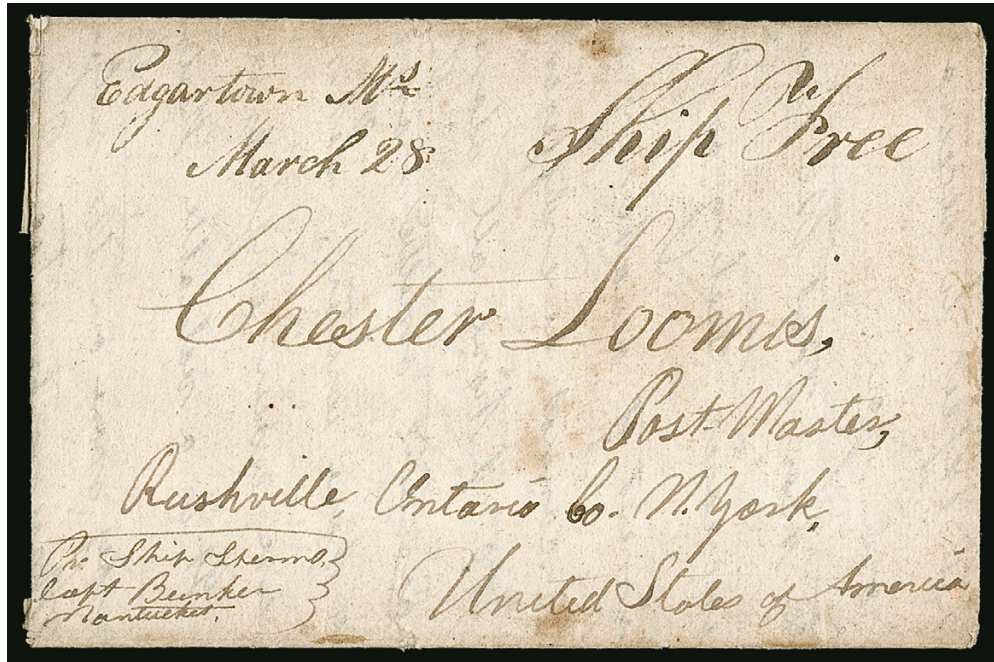 Edgartown Ms
March 28
Ship Free
Chester Loomis,
Post Master,
Rushville, Ontario Co. N. York,
United States of America
Pr. Ship
Capt Bunker
Nantucket.